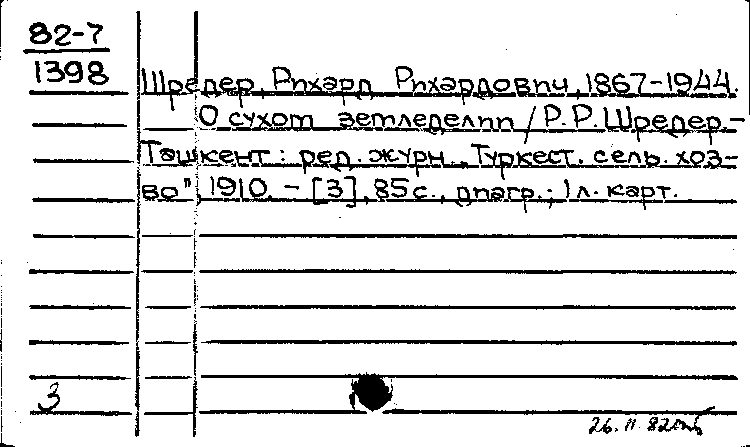 82-7
1398
Шредер, Рихард Рихардович, 1867-1944.
О сухом земледелии / Р.Р.Шредер.-
Ташкент: ред. журн. „Туркест. сель. хоз-
во", 1910. - [3], 85 с., диагр.; 1 л. карт.
3
26.11.82